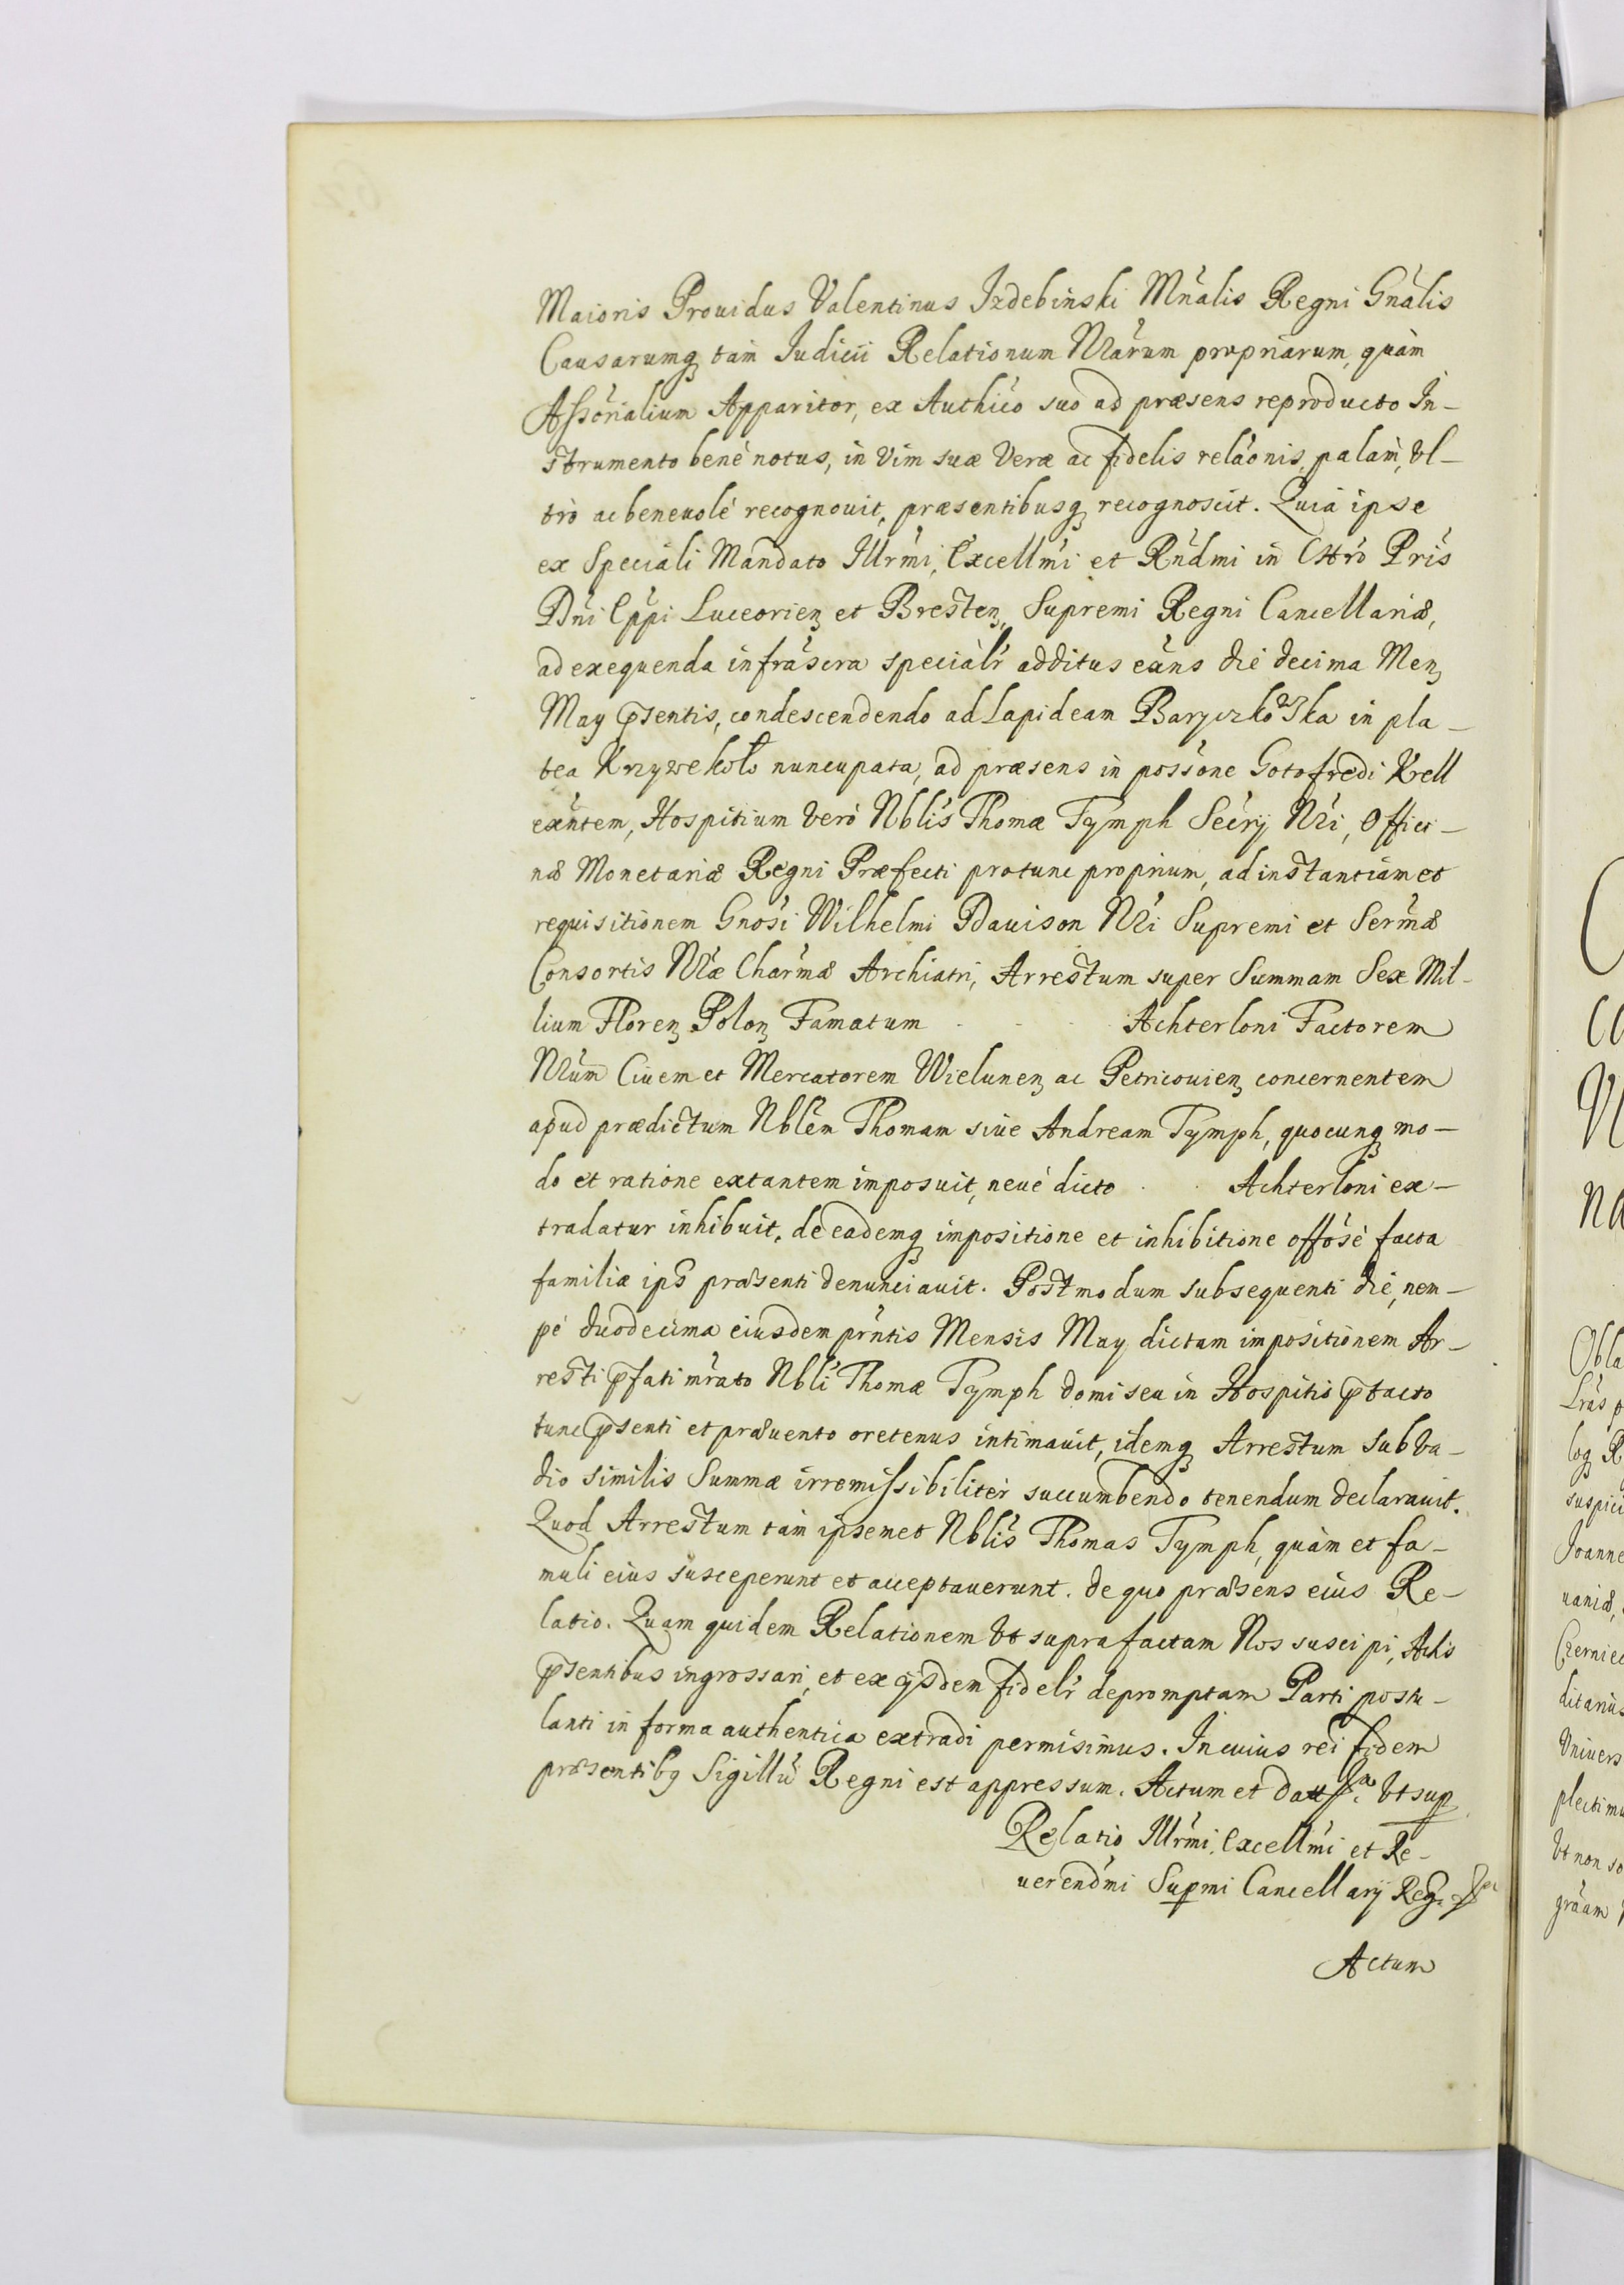 Maioris Prouidus Valentinus Izdebinski Mnalis Regni Gnalis
Causarumq tam Iudicii Relationum Nrarum propriarum, quàm
Assorialium Apparitor, ex Authico suo ad præsens reproducto In-
strumento benè notus, in vim suæ veræ ac fidelis relaonis, palam, vl-
trò ac beneuolè recognouit, præsentibusq recognoscit. Quia ipse
ex Speciali Mandato Illrmi, Excellmi et Rndmi in Chro Pris
Dni Eppi Luceorien et Bresten, Supremi Regni Cancellariæ,
ad exequenda infrascra specialr additus exns die decima Men
May psentis, condescendendo ad Lapideam Baryczkowska in pla-
tea Krzywekoło nuncupata, ad præsens in possone Gotofredi Krell
exntem, Hospitium verò Nblis Thomæ Tymph Secrij Nri, Offici-
næ Monetariæ Regni Præfecti protunc proprium, ad instantiam et
requisitionem Gnosi Wilhelmi Dauison Nri Supremi et Sermæ
Consortis Nræ Charmæ Archiatri, Arrestum super Summam Sex Mil-
lium Floren Polon Famatum - - - Achterloni Factorem
Nrum Ciuem et Mercatorem Wielunen ac Petricouien concernentem
apud prædictum Nblem Thomam siue Andream Tymph, quocunq mo-
do et ratione extantem imposuit, neuè dicto . . Achterloni ex-
tradatur inhibuit, de eademq impositione et inhibitione offosè facta
familiæ ips præsenti denunciauit. Postmodum subsequenti die, nem-
pè duodecima eiusdem prntis Mensis May dictam impositionem Ar-
resti pfati mrato Nbli Thomæ Tymph domi seu in Hospitio ptacto
tunc psenti et præuento oretenus intimauit, idemq Arrestum sub va-
dio similis Summæ irremissibiliter succumbendo tenendum declarauit.
Quod Arrestum tam ipsemet Nblis Thomas Tymph, quàm et fa-
muli eius susceperunt et acceptauerunt. de quo præsens eius Re-
latio. Quam quidem Relationem vt supra factam Nos suscipi, Actis
psentibus ingrossari, et ex ijsdem fidelr depromptam Parti postu-
lanti in forma authentica extradi permisimus. In cuius rei fidem
præsentibq Sigillu Regni est appressum. Actum et dat vt sup
Relatio Illrmi, Excellmi et Re-
uerendmi Supmi Cancellarij Reg.
Actum